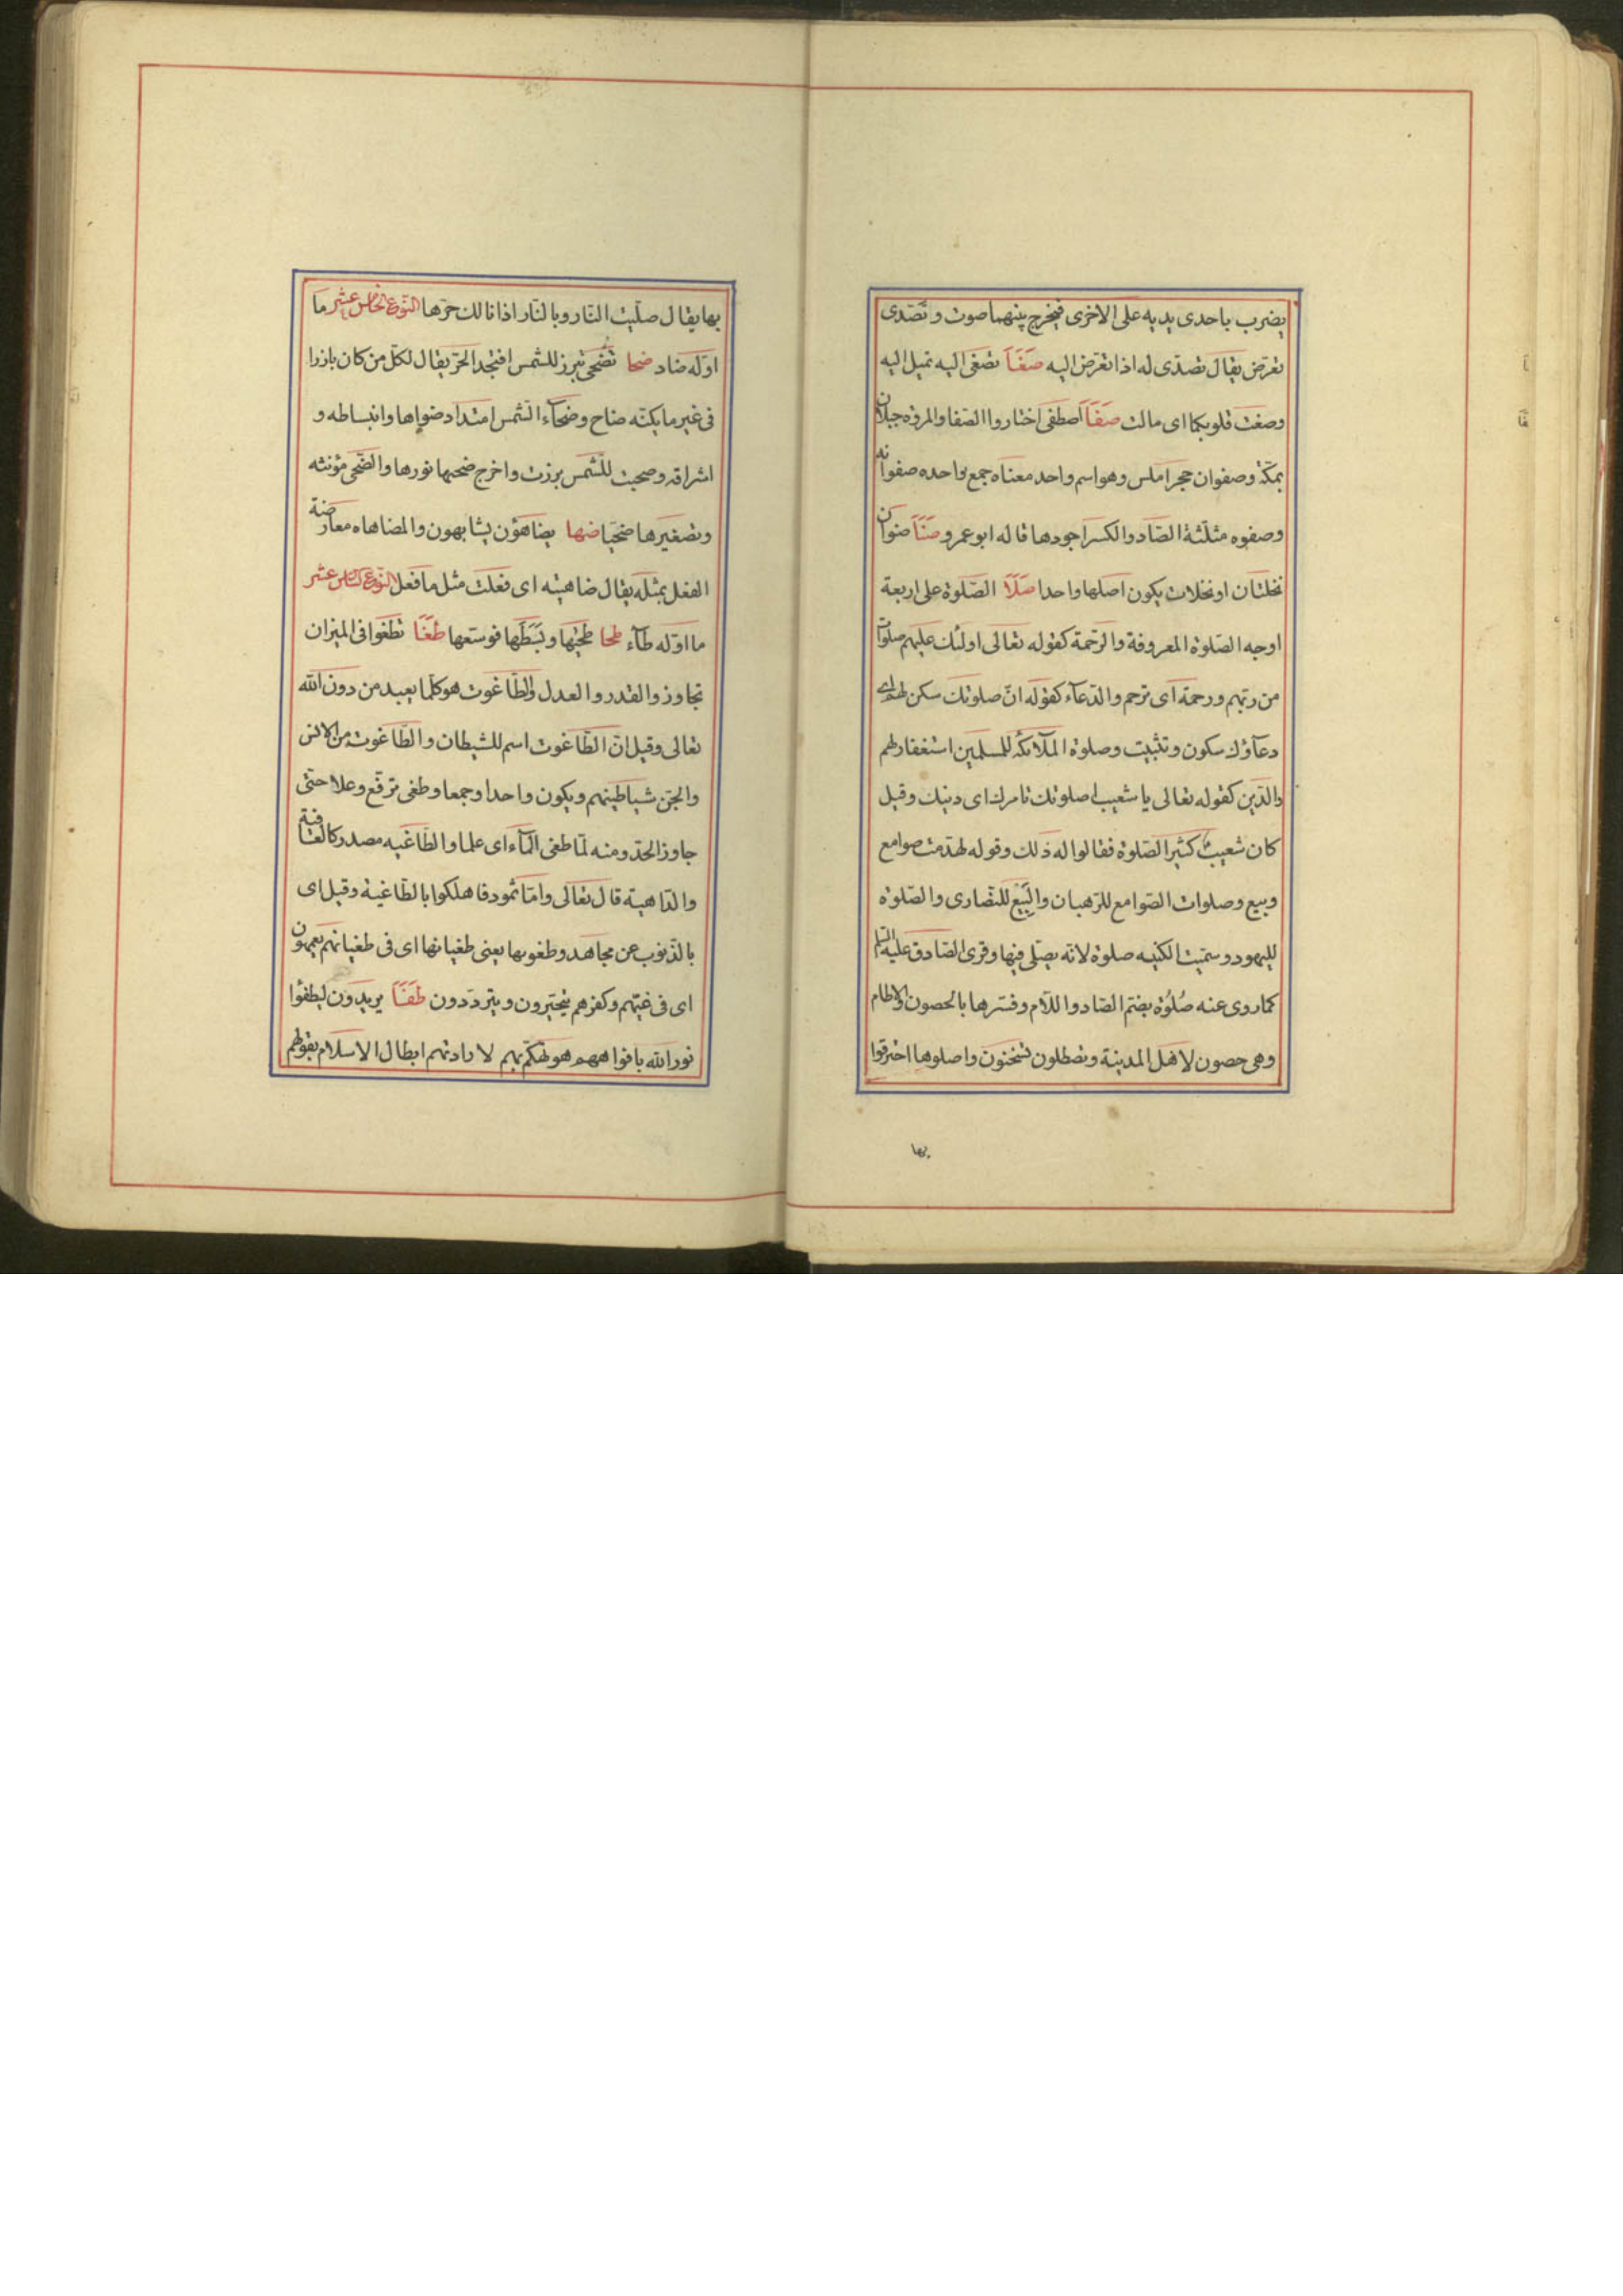 يضرب باحدى يديه على الاخرى فيخرج بينهما صوت و تصدى
تعرّض يقال تصدّى له اذا تعرّض اليه صغا تصغى اليه تميل اليه
وصغت قلوبكما اى مالت صفا اصطفى اختاروا الصفا والمروه جبلان
بمكّة وصفوان حجر املس وهو اسم واحد معناه جمع واحده صفوانه
وصفوه مثلّثة الصّاد والكسر اجودها قاله ابو عمرو صنا صنوان
نخلتان او نخلات يكون اصلها واحدا صلا الصّلوة على اربعة
اوجه الصّلوة المعروفة والرّحمة كقوله تعالى اولئك عليهم صلوات
من ربّهم ورحمة اى ترحم والدّعاء كقوله انّ صلوتك سكن لهم اى
دعاؤك سكون وتثبيت وصلوة الملآئكه للمسلمين استغفار لهم
والدّين كقوله تعالى يا شعيب اصلوتك تامرك اى دينك وقيل
كان شعيب كثير الصّلوة فقالوا له ذلك وقوله لهدّمت صوامع
وبيع وصلوات الصّوامع للرّهبان والبيع للنّصارى والصّلوة
لليهود وسمّيت الكنيسه صلوة لانّه يصلّى فيها وقرئ الصّادق عليه السّلم
كما روى عنه صُلُوة بضمّ الصّاد واللّام وفسّرها بالحصون والاطام
وهى حصون لاهل المدينة وتصطلون تسخنون واصلوها احترقوا
بها
بها يقال صليت النّار وبالنّار اذا نالك حرّها النّوع الخامس عشر ما
اوّله ضاد ضحا تضحى تبرز للشمس افتجد الحرّ يقال لكلّ من كان بارزا
فى غير ما يكنّه ضاح وضحآء الشّمس امتداد ضواها وانبساطه و
اشراقه وضحيت للشّمس برزت واخرج ضحيها نورها والضّحى مؤنثه
وتصغيرها ضحيّا ضها يضاهؤن يشابهون والمضاهاه معارضة
الفعل بمثله يقال ضاهيته اى فعلت مثل ما فعل النّوع السّادس عشر
ما اوّله طآء طحا طحيها وبسطها فوسّعها طغا تطغوا فى الميزان
تجاوز والقدر والعدل والطّاغوت هو كلّما يعبد من دون الله
تعالى وقيل انّ الطّاغوت اسم للشيطان والطّاغوت من الانس
والجنّ شياطينهم ويكون واحدا وجمعا وطغى ترفّع وعلا حتّى
جاوز الحدّ ومنه لمّا طغى المآء اى علما والطّاغيه مصدر كالعافية
والدّاهية قال تعالى وامّا ثمود فاهلكوا بالطّاغية وقيل اى
بالذّنوب عن مجاهد وطغويها يعنى طغيانها اى فى طغيانهم يعمهون
اى فى غيّهم وكفرهم يتحيّرون ويتردّدون طفا يريدون ليطفؤا
نور الله بافواههم هو تهكّم بهم لارادتهم ابطال الاسلام بقولهم